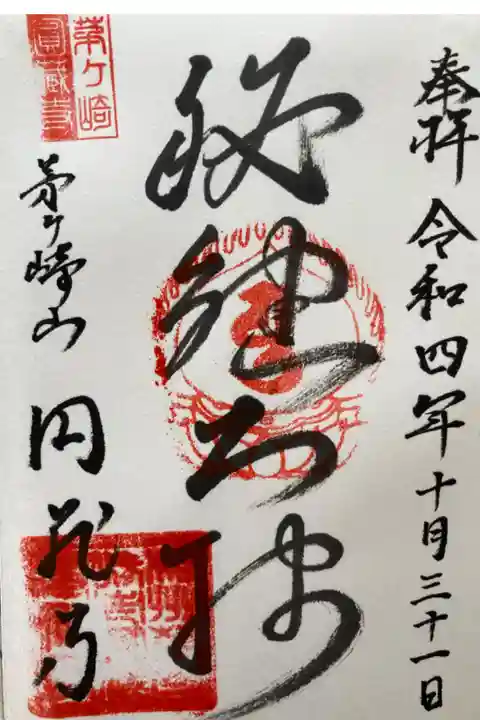 奉拝 令和四年十月三十一日
秘鍵大師
茅ケ崎
圓蔵寺
茅ケ崎山 円蔵寺